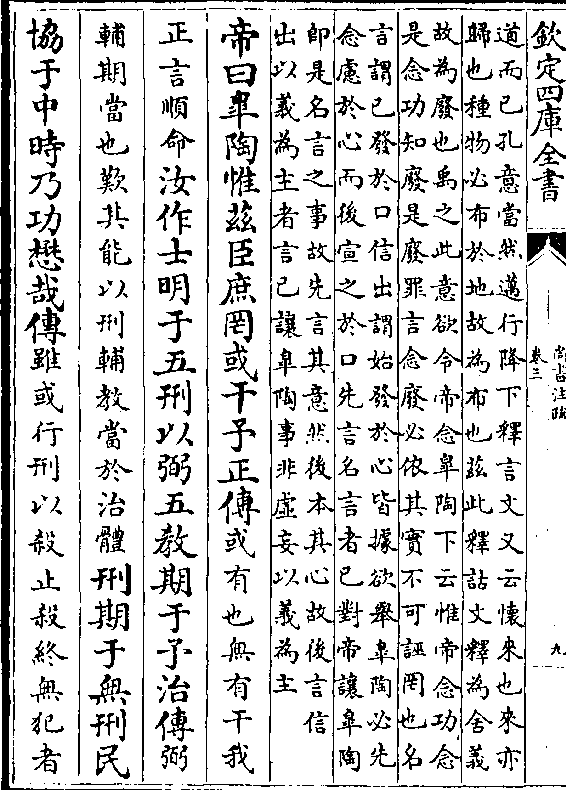 欽定四庫全書
尚書注疏
卷三
九
道而已孔意當然邁行降下釋言文又云懷來也來亦
歸也種物必布於地故為布也茲此釋詁文釋為舍義
故為廢也禹之此意欲令帝念臯陶下云惟帝念功念
是念功知廢是廢罪言念廢必依其實不可誣罔也名
言謂已發於口信出謂始發於心皆據欲舉臯陶必先
念慮於心而後宣之於口先言名言者已對帝讓臯陶
即是名言之事故先言其意然後本其心故後言信
出以義為主者言已讓臯陶事非虛妄以義為主
帝曰臯陶惟茲臣庶罔或干予正傳或有也無有干我
正言順命汝作士明于五刑以弼五教期于予治傳弼
輔期當也歎其能以刑輔教當於治體刑期于無刑民
協于中時乃功懋哉傳雖或行刑以殺止殺終無犯者